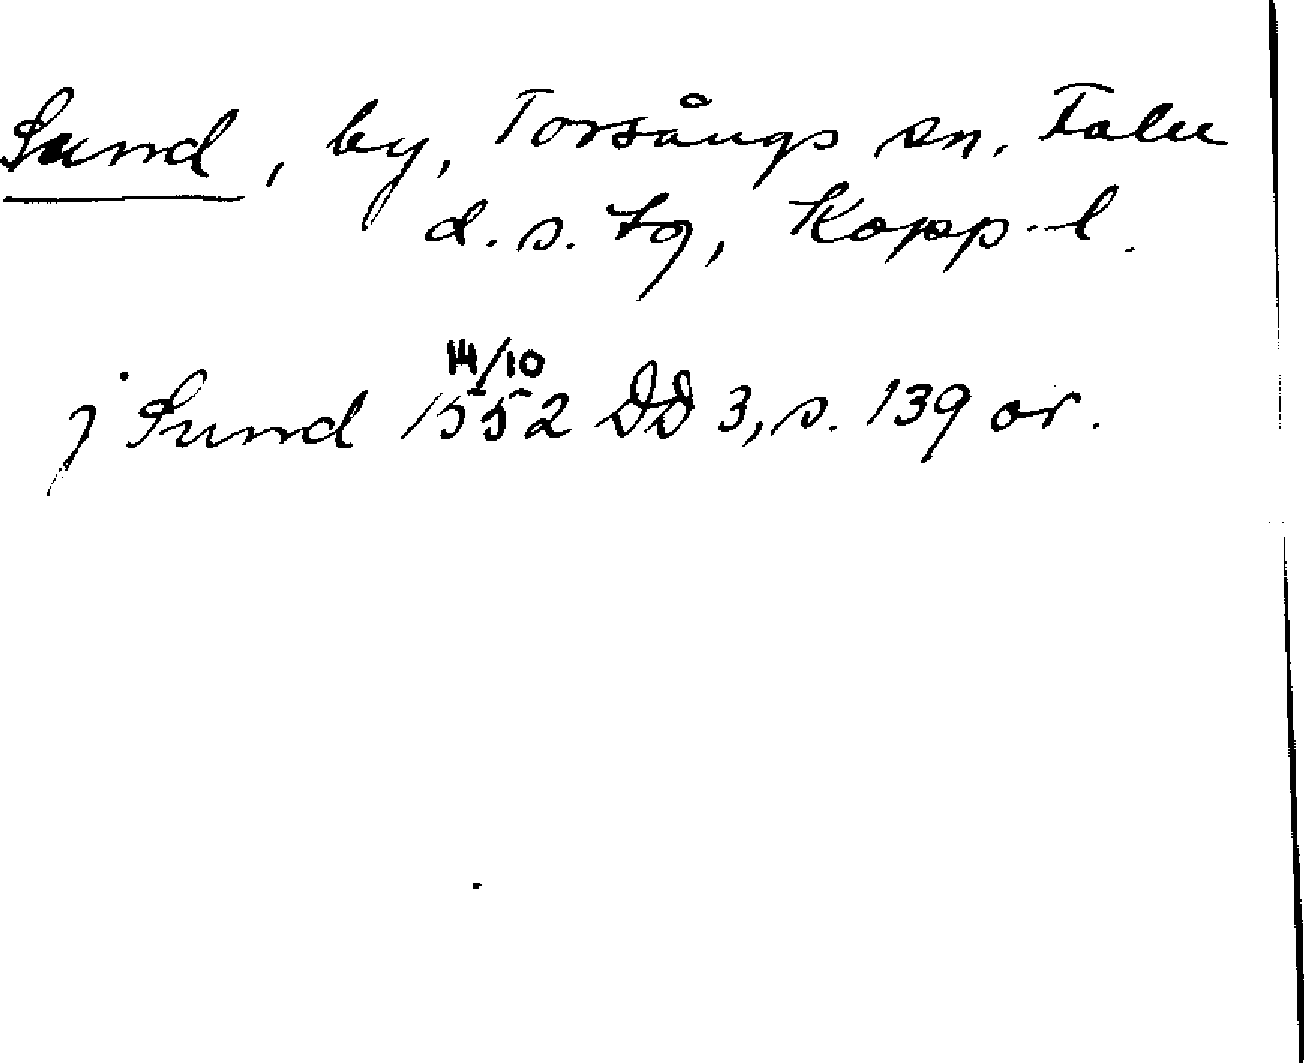 Sund, by, Torsångs sn. Falu
d. s. tg, Kopp. l.
14/10
j Sund 1552 DD 3, s. 139 or.